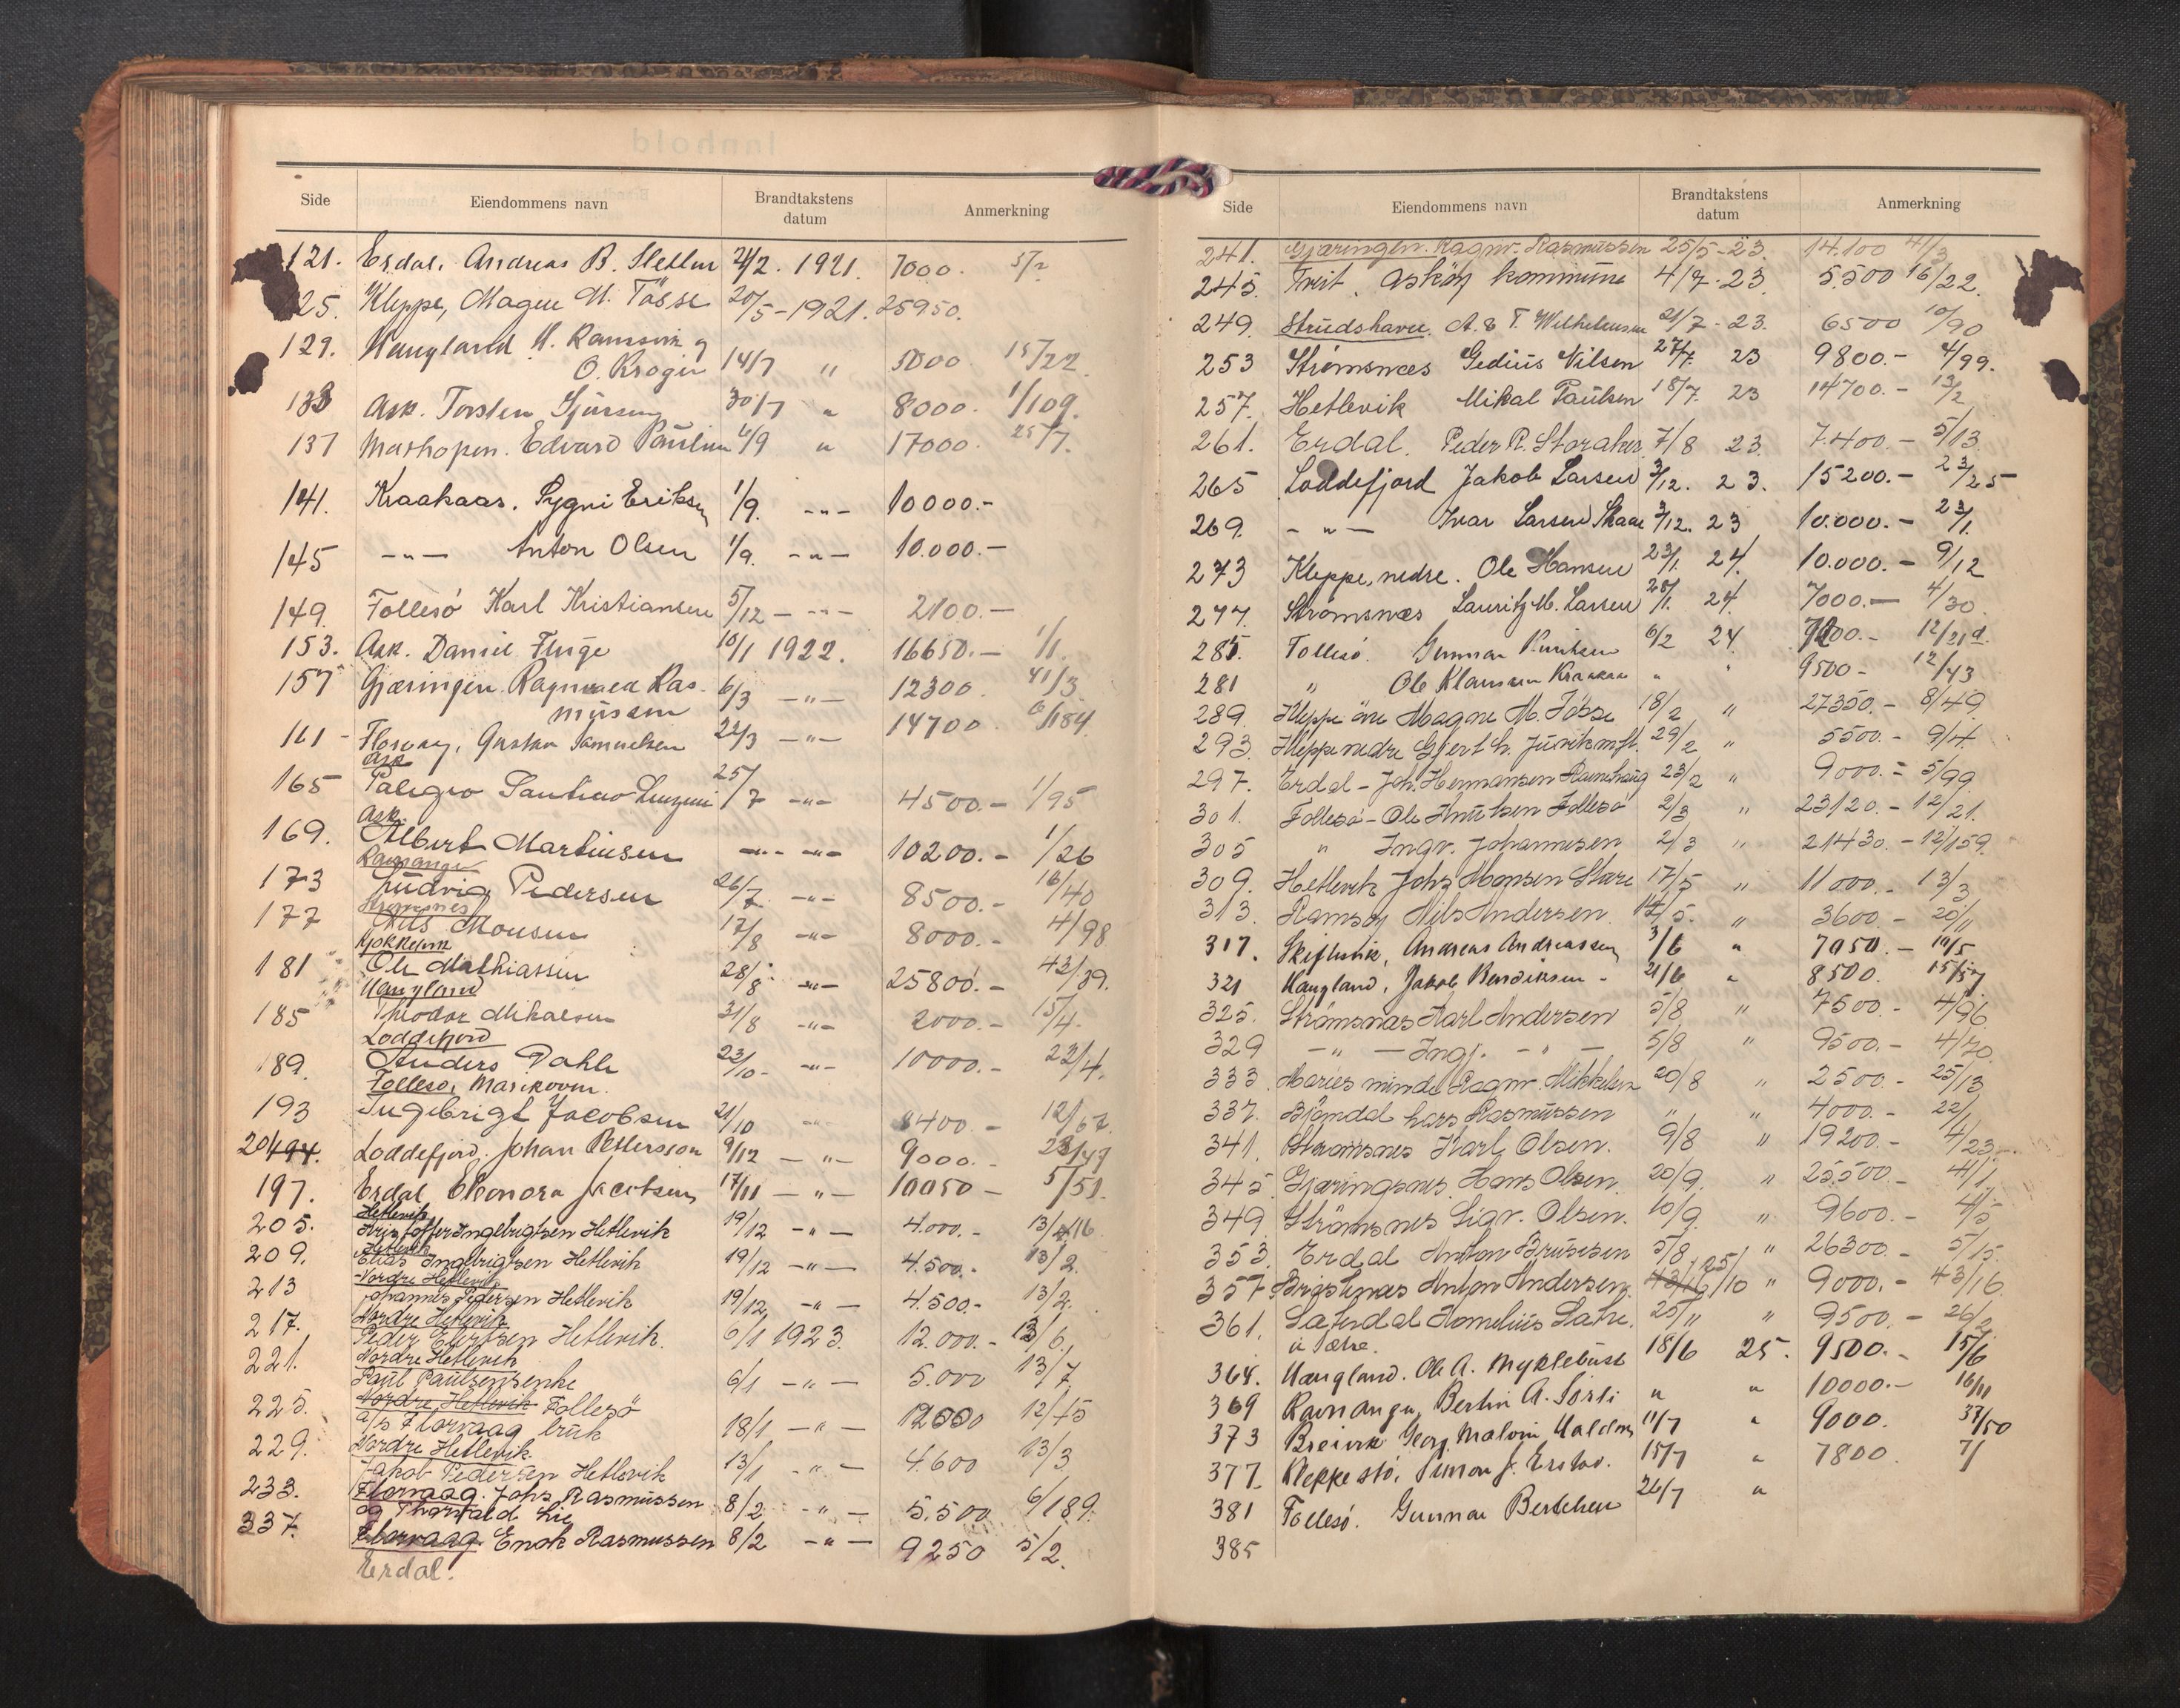 Side Eiendommens navn Brandtakstens datum Anmerkning
121. Erdal. Andreas B. 2/2. 1921. 7000. 5/2
25. Kleppe, Magne M. Tösse 20/5-1921. 25950.
129. Haugland M. Ramsvik og
O. Kröger 14/7 " 5000 15/22
133 Ask. Torsten 30/7 " 8000. 1/109.
137 Marhopen. Edvard Paulsen 6/9 " 17000. 25/7.
141. Kraakaas. Sygni Eriksen 1/9. -"- 10000.-
145 -"- Anton Olsen 1/9. -"- 10.000.-
149. Follesö Karl Kristiansen 5/12 - -"- 2100.-
153. Ask. Daniel Fluge 10/1 1922. 16650.- 1/1.
157 Gjæringen Ragnvald Ras- 6/3 -"- 12300. 41/3.
mussen
161 - Florvaag, Gustav Samuelsen 22/3 -"- 14700 6/184.
Ask
165 25/7 -"- 4500.- 1/95
Ask.
169. Albert Martinsen -"- -"- 10200.- 1/26
Ravnanger
173 Ludvig Pedersen 26/7 -"- 8500.- 16/40
Strömsnes
177 Nils Monsen 17/8 -"- 8000.- 4/98
Kjökkelvik
181 Ole Mathiassen 28/8 -"- 25800.- 43/39.
Haugland
185 Theodor Mikalsen 31/8 -"- 2000.- 15/4.
Loddefjord
189. Anders Dahle 23/10- -"- 10000.- 22/4.
Follesö, Marikoven.
193 Ingebrigt Jacobsen 21/10 -"- 8400.- 12/67.
201 194. Loddefjord. Johan Pettersson 9/12 -"- 9000.- 23/49
197. Erdal Elenora Jacobsen 17/11 -"- 10050- 5/51.
Hetlevik
205. Kristoffer Ingebrigtsen Hetlevik 19/12 -"- 4.000.- 13/16
Hetlevik
209. Elias Ingebrigtsen Hetlevik 19/12 -"- 4.500.- 13/2.
Nordre Hetlevik
213 Johannes Pedersen Hetlevik 19/12 -"- 4.500.- 13/2.
Nordre Hetlevik
217. Peder Elertsen Hetlevik. 6/1 1923 12.000.- 13/6.
Nordre Hetlevik
221. Paul Paulsens enke 6/1 -"- 5.000 13/7
Nordre Hetlevik Follesö
225. a/s Florvaag bruk 18/1 -"- 12000 12/75
Nordre Hetlevik.
229. Jakob Pedersen Hetlevik 13/1 -"- 4.600 13/3
233. Florvaag. Johs Rasmussen 8/2 -"- 5.500 6/189.
og Thorvald Lie
337. Florvaag Enok Rasmussen 8/2 -"- 9250 5/2.
Erdal.
Side Eiendommens navn Brandtakstens datum Anmerkning
241. Gjæringen. Ragnv. Rasmussen 25/5-23. 14.100 41/3
245. Trit. Asköy kommune 4/7-23. 5.500 16/22.
249. Strudshavn. A. & T. Wilhelmsen 21/7-23. 6500 10/90
253 Strömsnæs Gedius Nilsen 27/7. 23 9800.- 4/99.
257. Hetlevik Mikal Paulsen 18/7. 23 14700.- 13/2
261. Erdal. Peder R. Storaker 7/8 23. 7.400.- 5/13.
265 Loddefjord Jakob Larsen 3/12. 23. 15200.- 23/25
269. -"- Ivar Larsen Skaar 3/12. 23 10.000.- 23/1.
273 Kleppe, nedre. Ole Hansen 23/1. 24. 10.000.- 9/12
277. Strömsnæs Lauritz M. Larsen 28/1. 24. 7000.- 4/30
285. Follesö. Gunnar Knutsen 6/2 24. 7200.- 12/21 d.
281 " Ole Klausen Kraakaas " " 9500- 12/43
289. Kleppe övre Magne M. Tösse 18/2 " 27350.- 8/49.
293. Kleppe nedre Gjert h. Juvik m.fl. 29/2 " 5500.- 9/4.
297. Erdal - Joh. Hermansen Ravnhaug 23/2 " 9000.- 5/99
301. Follesö - Ole Knutsen Follesö 2/3 " 23120.- 12/21.
305 " Ingv. Johannesen 2/3 " 21430.- 12/159.
309. Hetlevik Johs Monsen Stare 17/5 " 11000.- 13/3
313. Ramsöy Nils Andersen. 14/5. " 3600.- 20/11
317. Skiftesvik, Andreas Andreassen 3/6 " 7050.- 10/5
321 Haugland, Jakob Bendiksen - 21/6 " 8500. 15/57
325. Strömsnæs Karl Andersen 5/8 " 7500.- 4/96
329 -"- Ingj. -"- 5/8 " 9500.- 4/70.
333. Maries minde Ragnv. Mikkelsen 20/8 " 2500.- 25/13
337. Bjöndal Lars Rasmussen " " 4000.- 22/1
341. Strömsnes Karl Olsen. 9/8 " 19200.- 4/23.
345 Gjæringsnes Hans Olsen. 20/9. " 25.500.- 4/1.
349. Strömsnes Sigv. Olsen. 10/9. " 9600.- 4/5
353. Erdal Anton Brussen 5/8 " 26300.- 5/15.
357. Anton Andersen. 43/16 25/10 " 9000.- 43/16.
361. Kornelius Satre. 25/11 " 9500.- 26/2
365. Haugland. Ole A. Myklebust 18/6 25. 9500.- 15/6
369 Ravnanger, Bertin A. Sörli " " 10000.- 16/11
373 Breivik Georg Malvin 11/7 " 9000. 37/50
377. Kleppestö, Simon J. Erstad. 15/7 " 7800 7/
381 Follesö. Gunnar Bertelsen 26/7 "
385